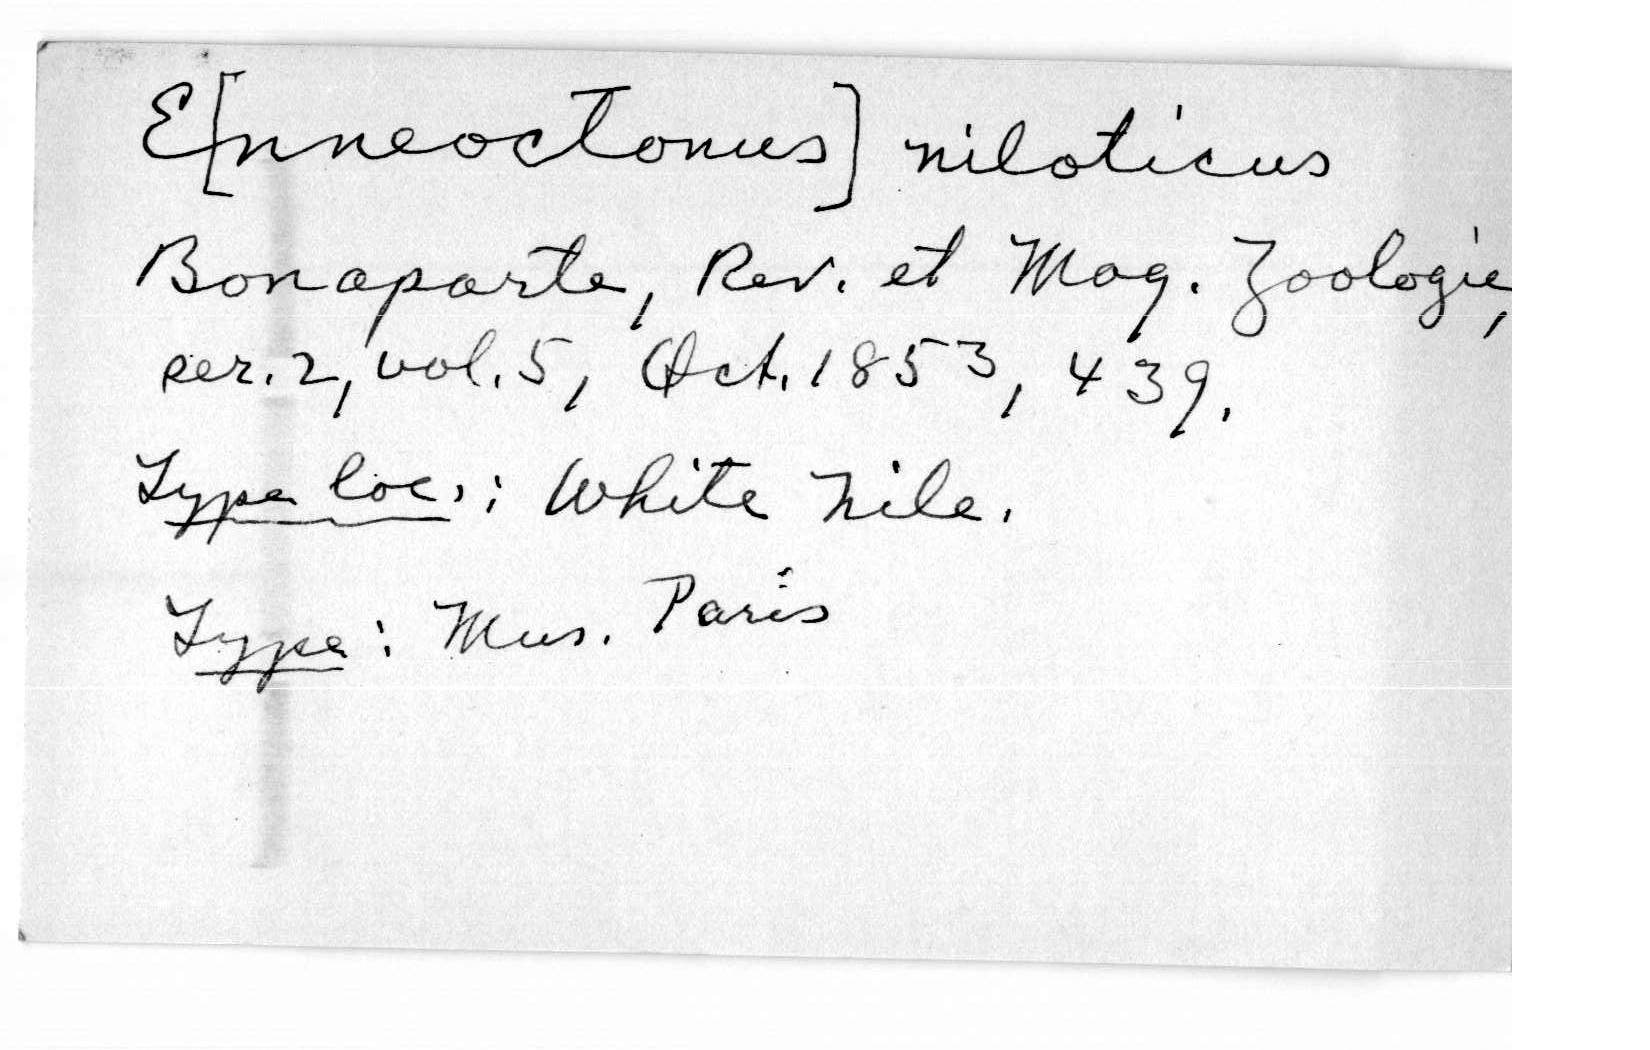 E[nneoctonus] niloticus
Bonaparte, Rev. et Mag. Zoologie,
ser. 2, vol. 5, Oct. 1853, 439.
Type loc.: White Nile.
Type: Mus. Paris